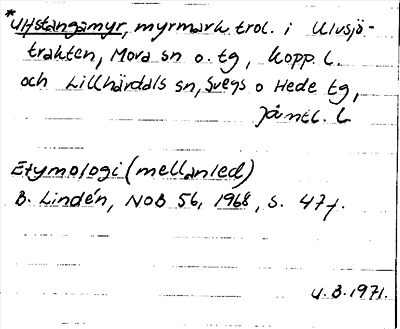 *Ulfstangamyr, myrmark trol. i Ulvsjö-
trakten, Mora sn o. tg, Kopp. l.
och Lillhärdals sn, Svegs o Hede tg,
Jämtl. l
Etymologi (mellanled)
B. Lindén, NoB 56, 1968, s. 47f.
U.B. 1971.